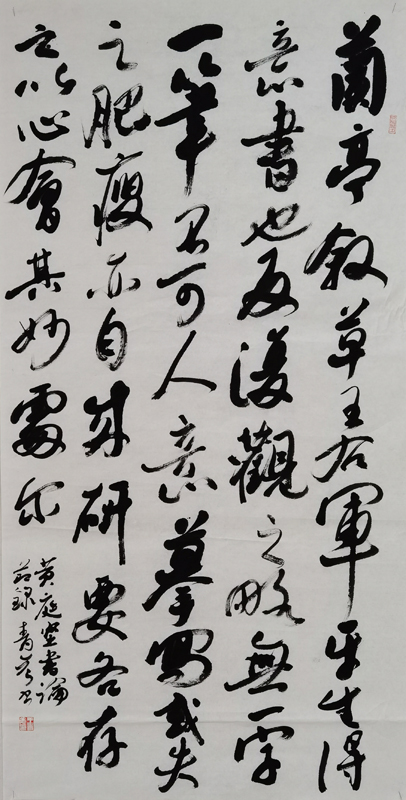 蘭亭敘草王右軍平生得
意書也反復觀之略無一字
一筆不可人意摹寫或失
之肥瘦亦自成研要各存
之以心會其妙處尔
黄庭堅書論
節録青